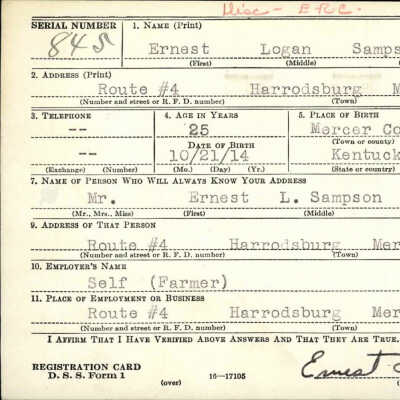 Disc - E.R.C.
SERIAL NUMBER
845
1. NAME (Print)
Ernest Logan Samps
(First) (Middle)
2. ADDRESS (Print)
Route #4 Harrodsburg M
(Number and street or R. F. D. number) (Town)
3. TELEPHONE
--
--
(Exchange) (Number)
4. AGE IN YEARS
25
DATE OF BIRTH
10/21/14
(Mo.) (Day) (Yr.)
5. PLACE OF BIRTH
Mercer Co
(Town or county)
Kentuck
(State or country)
7. NAME OF PERSON WHO WILL ALWAYS KNOW YOUR ADDRESS
Mr. Ernest L. Sampson
(Mr., Mrs., Miss) (First) (Middle)
9. ADDRESS OF THAT PERSON
Route #4 Harrodsburg Mer
(Number and street or R. F. D. number) (Town)
10. EMPLOYER'S NAME
Self (Farmer)
11. PLACE OF EMPLOYMENT OR BUSINESS
Route #4 Harrodsburg Mer
(Number and street or R. F. D. number) (Town)
I AFFIRM THAT I HAVE VERIFIED ABOVE ANSWERS AND THAT THEY ARE TRUE.
REGISTRATION CARD
D. S. S. Form 1
(over)
16—17105
Ernest